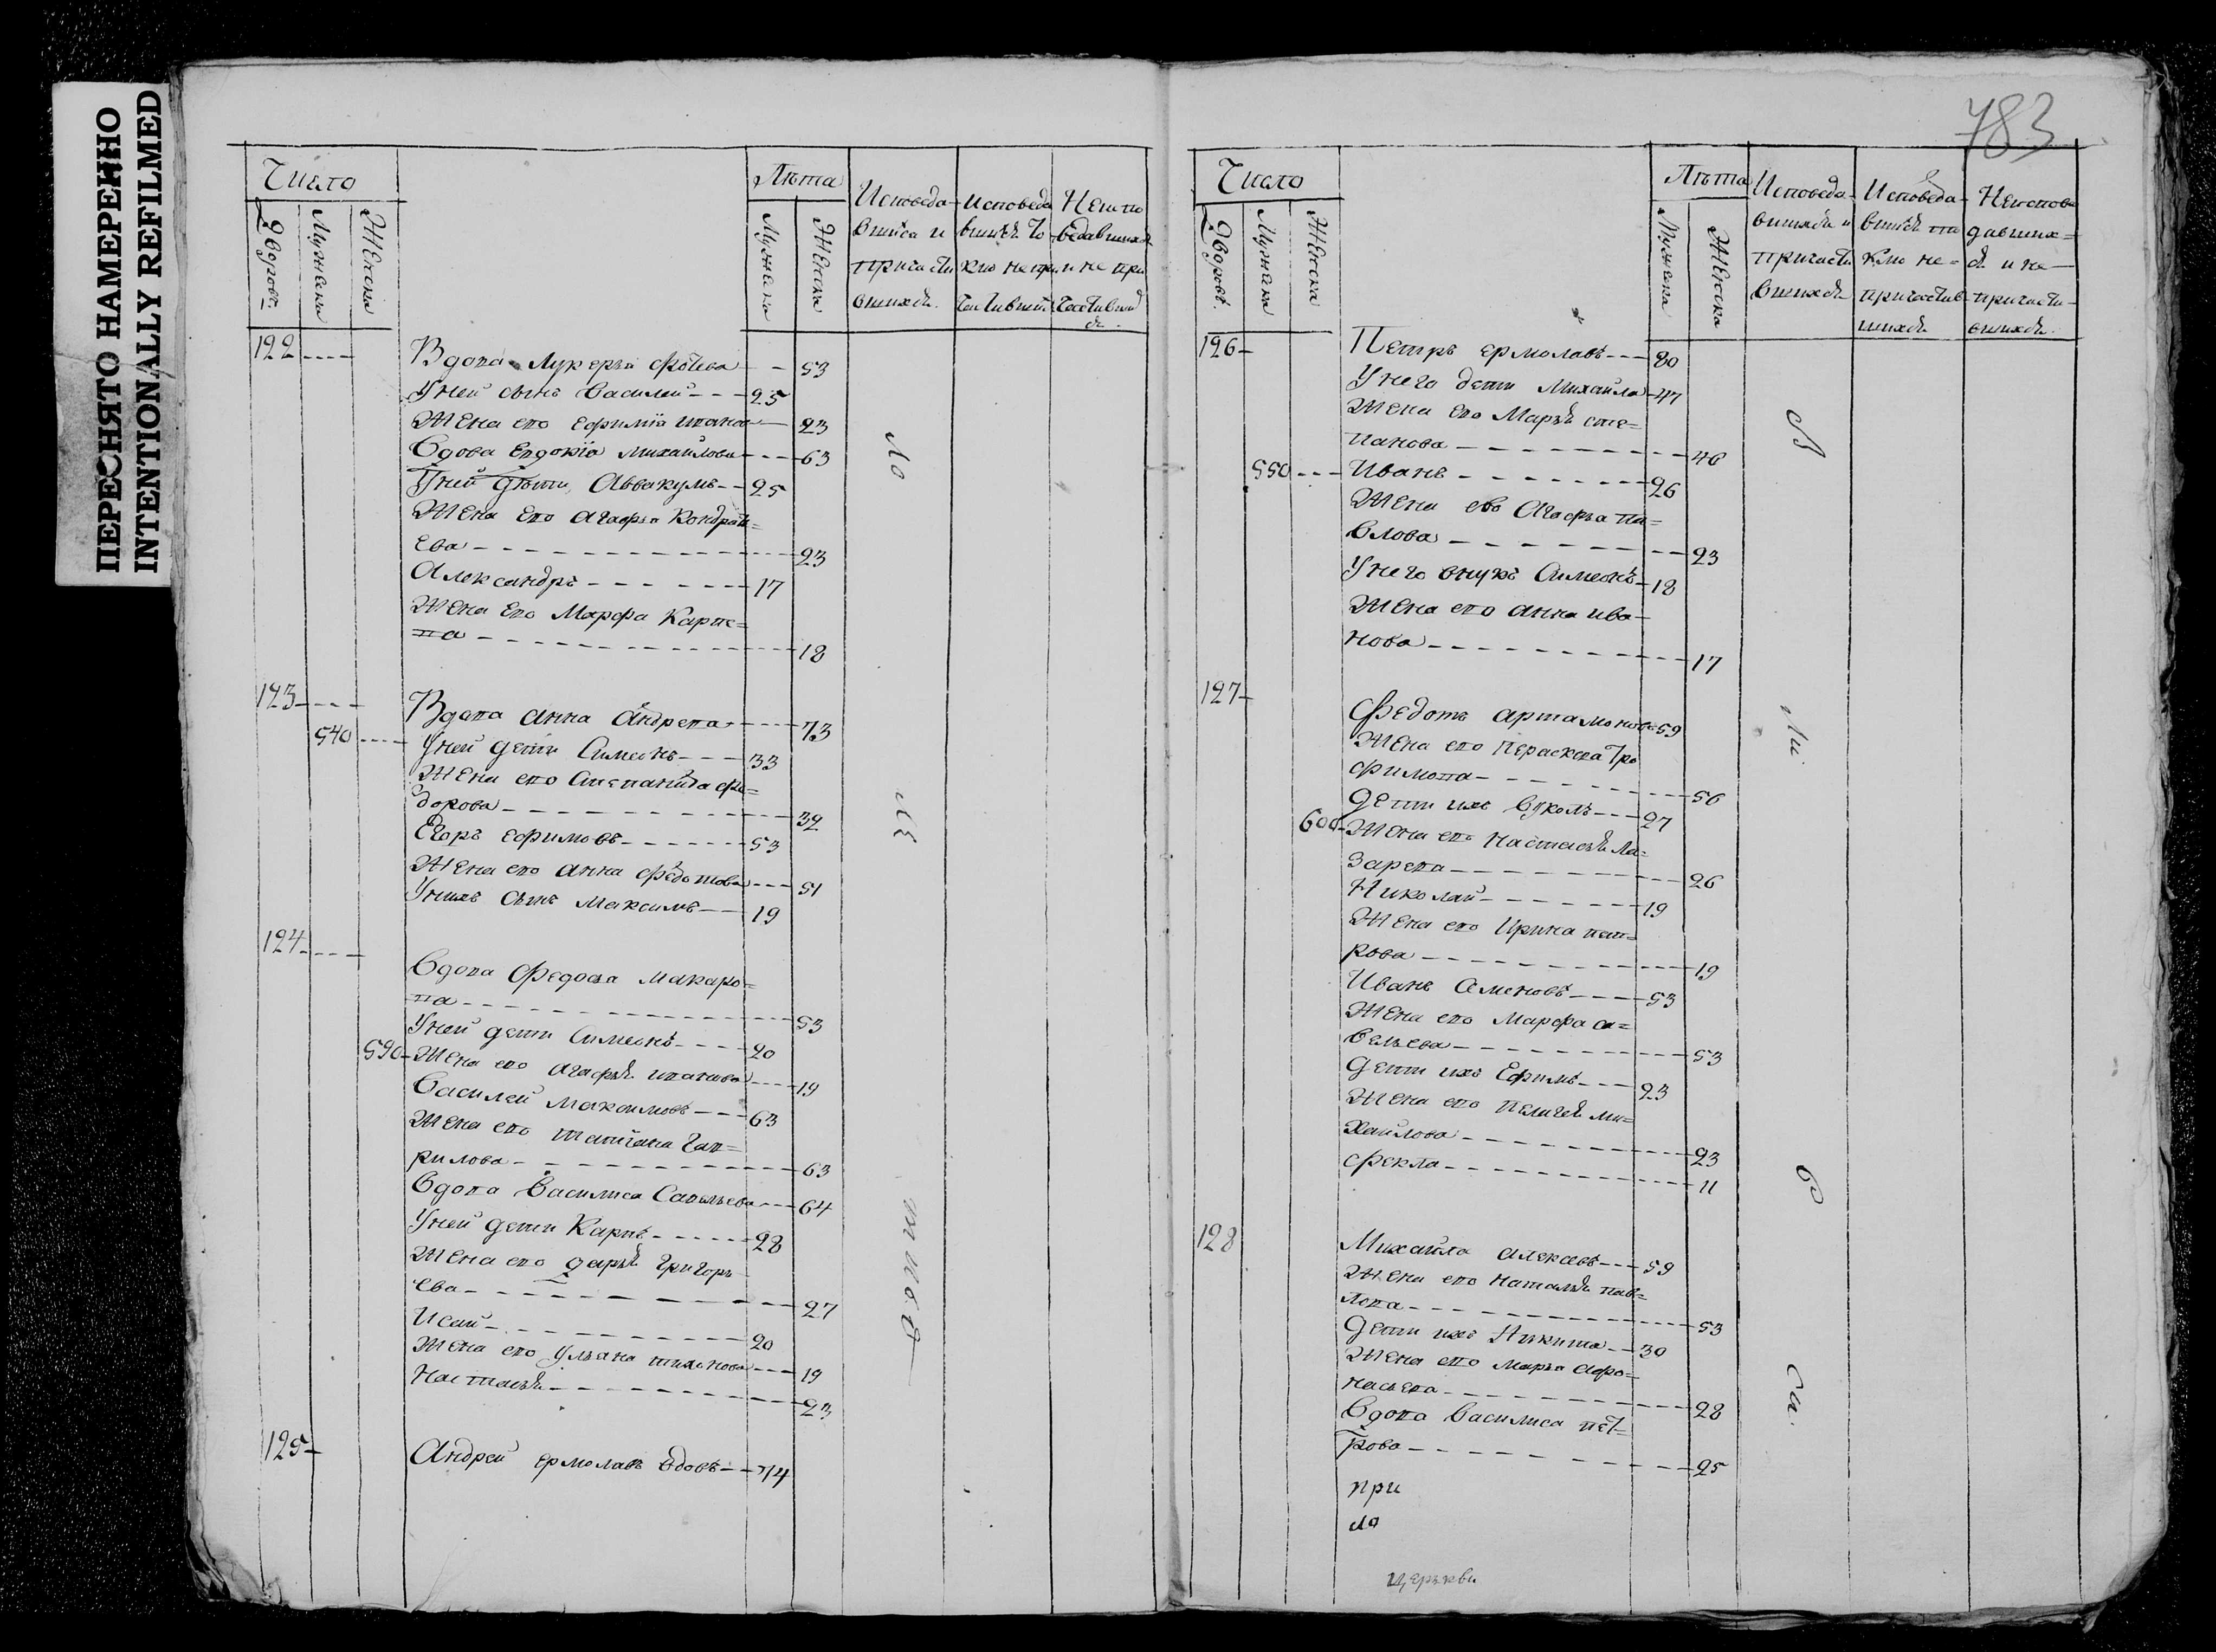 ПЕРЕСНЯТО НАМЕРЕННО
INTENTIONALLY REFILMED
783
Число
Лѣта
Дворовъ
Мужеска
Женска
Мужеска
Женска
Исповеда-
вшися и
причасти
вшихся.
122
Вдова Лукерья Фотева 53
У ней сынъ Василей 25
Жена его Ефимия 23
Вдова Евдокїа Михайлова 63
У ней дѣти Аввакумъ 25
Жена его Агафья Кондрать=
ева 23
Александръ 17
Жена его Марфа Карпо=
ва 18
123
Вдова Анна Андрева 73
540
У ней дети Симеонъ 33
Жена его Степанида Фе=
дорова 32
Егоръ Ефимовъ 53
Жена его Анна Федотова 51
У нихъ сынъ Максимъ 19
124
Вдова Федосья Макаро=
ва 53
У ней дети Симеонъ 20
590
Жена его Агафья Ипатова 19
Василей Максимовъ 63
Жена его Татиана Гав=
рилова 63
Вдова Василиса Савельева 64
У ней дети Карпъ 28
Жена его Дарья Григорь
ева 27
Исай 20
Жена его Ульяна Тихонова 19
Настасья 23
125
Андрей Ермолавъ вдовъ 74
Число
Лѣта
Дворовъ
Мужеска
Женска
Мужеска
Женска
Исповеда-
вшихся и
причасти
вшихся
126
Петръ Ермолавъ 80
У него дети Михайла 47
Жена его Марья Сте=
панова 46
550
Иванъ 26
Жена ево Агафья Па=
влова 23
У него внукъ Симеонъ 18
Жена его Анна Ива-
нова 17
127
Федотъ Артамоновъ 59
Жена его Пераскева Тро
фимова 56
дети ихъ Вуколъ 27
600
Жена его Настасья Ла=
зарева 26
Николай 19
Жена его Ирина Пет=
рова 19
Иванъ Семеновъ 53
Жена его Марфа Са=
вельева 53
дети ихъ Ефимъ 23
Жена его Пелагея Ми=
хайлова 23
Фекла 11
128
Михайла Алексевъ 59
Жена его Наталья Пав=
лова 53
дети ихъ Никита 30
Жена его Марья Афо=
насьева 28
Вдова Василиса Пет=
рова 25
при
ло
церкви